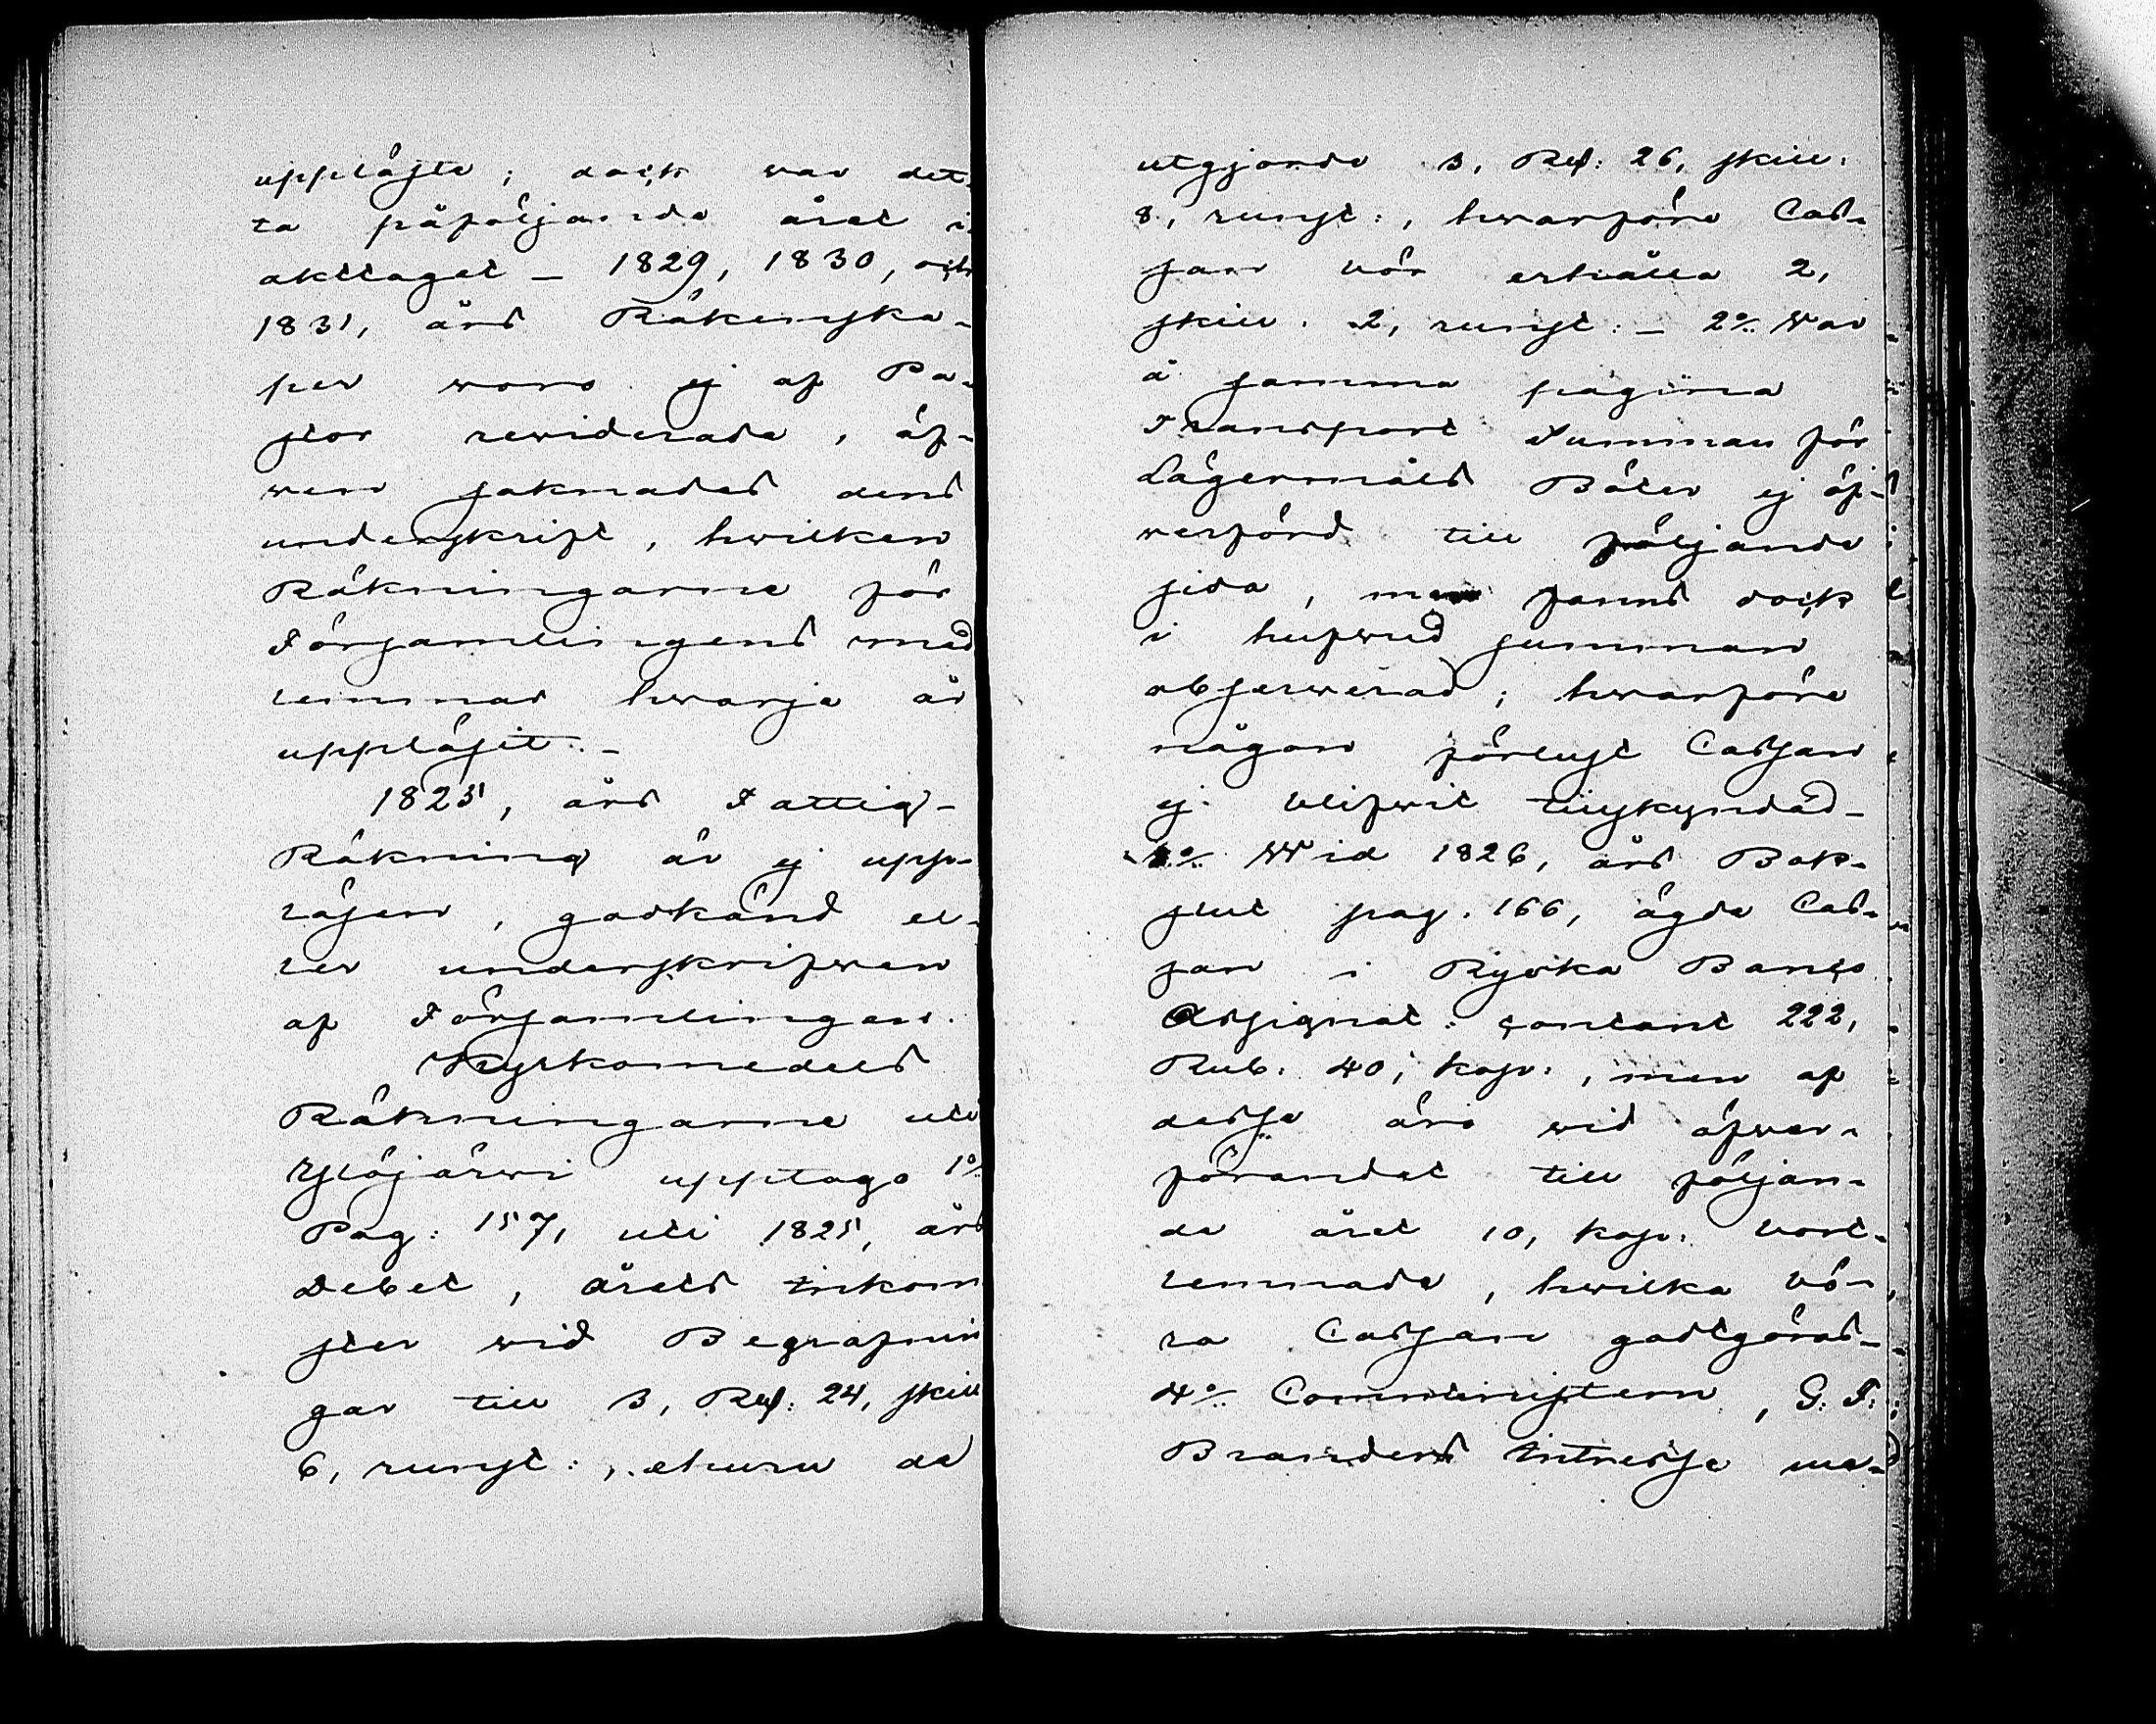 uppläste; dock war det-
ta påföljande året i
akttaget – 1829, 1830, och
1831, års Räkenska-
per woro ej af Pa-
stor reviderade, äf-
wen saknades dens
underskrift, hwilken
Räkningarne för
Församlingens med
lemmar hwarje år
uppläsit. –
1825, års Fattig-
Räkning är ej upp-
läsen, godkänd el-
ler underskrifwen
af Församlingen.
Kyrkomedels
Räkningarne uti
Ylöjärwi upptogo 1o
Pag: 157, uti 1825, års
Debet, årets inkom
ster wid Begrafnin
gar till 3, Rd: 24, skill
6, runst:, ehuru de
utgjorde 3, Rd: 26, skill:
8, runst:, hwarföre Cas-
san bör erhålla 2,
skill. 2, runst: – 2o War
å samma pagina
Transport Summan för
Lägermåls Böter ej öf-
werförd till följande
sida, men fanns dock
i hufwud summan
observerad; hwarföre
någon förlust Cassan
ej blifwit tillskyndad –
Wid 1826, års Bok-
slut pag. 166, ägde Cas-
san i Ryska Banco
Assignat: contant 222,
Rub. 40, kop:, men af
desse äro wid öfwer-
förandet till följan-
de året 10, kop: bort-
lemnade, hwilka bö-
ra Cassan godtgöras –
4o Comministern, G: F:
Branders intresse me-